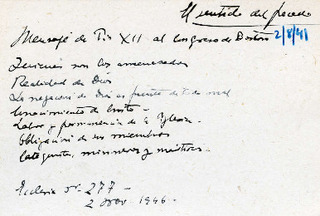 El sentido del pecado
Mensaje de Pio XII al Congreso de Boston
2/8/41
son los amenazados
Realidad de Dios
La negación de Dios es fuente del mal
Conocimiento de Cristo -
Labor y permanencia de la Iglesia -
Obligación de sus miembros
Catequistas, misioneros y maestros. -
Ecclesia nº 277 -
2 Nov. 1946 -